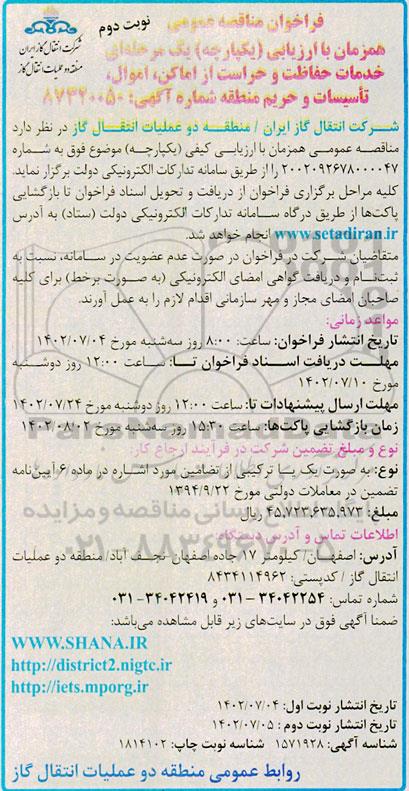 فراخوان مناقصه عمومی
نوبت دوم
شرکت انتقال گاز ایران
منطقه دو عملیات انتقال گاز
همزمان با ارزیابی (یکپارچه) یک مرحله‌ای
خدمات حفاظت و حراست از اماکن، اموال،
تأسیسات و حریم منطقه شماره آگهی: ۸۷۳۲۰۰۵۰
شرکت انتقال گاز ایران / منطقه دو عملیات انتقال گاز در نظر دارد
مناقصه عمومی همزمان با ارزیابی کیفی (یکپارچه) موضوع فوق به شماره
۲۰۰۲۰۹۲۶۷۸۰۰۰۰۴۷ را از طریق سامانه تدارکات الکترونیکی دولت برگزار نماید.
کلیه مراحل برگزاری فراخوان از دریافت و تحویل اسناد فراخوان تا بازگشایی
پاکت‌ها از طریق درگاه سامانه تدارکات الکترونیکی دولت (ستاد) به آدرس
www.setadiran.ir انجام خواهد شد.
متقاضیان شرکت در فراخوان در صورت عدم عضویت در سامانه، نسبت به
ثبت‌نام و دریافت گواهی امضای الکترونیکی (به صورت برخط) برای کلیه
صاحبان امضای مجاز و مهر سازمانی اقدام لازم را به عمل آورند.
مواعد زمانی:
تاریخ انتشار فراخوان: ساعت: ۸:۰۰ روز سه‌شنبه مورخ ۱۴۰۲/۰۷/۰۴
مهلت دریافت اسناد فراخوان تا: ساعت ۱۲:۰۰ روز دوشنبه
مورخ ۱۴۰۲/۰۷/۱۰
مهلت ارسال پیشنهادات تا: ساعت ۱۲:۰۰ روز دوشنبه مورخ ۱۴۰۲/۰۷/۲۴
زمان بازگشایی پاکت‌ها: ساعت ۱۵:۳۰ روز سه‌شنبه مورخ ۱۴۰۲/۰۸/۰۲
نوع و مبلغ تضمین شرکت در فرآیند ارجاع کار:
نوع: به صورت یک یا ترکیبی از تضامین مورد اشاره در ماده ۶ آیین‌نامه
تضمین در معاملات دولتی مورخ ۱۳۹۴/۹/۲۲
مبلغ: ۴۵,۷۲۳,۶۳۵,۹۷۳ ریال
اطلاعات تماس و آدرس دستگاه:
آدرس: اصفهان/ کیلومتر ۱۷/جاده اصفهان-نجف آباد/ منطقه دو عملیات
انتقال گاز / کدپستی: ۸۴۳۴۱۱۴۹۶۲
شماره تماس: ۳۴۰۴۲۲۵۴ – ۰۳۱ و ۳۴۰۴۲۴۱۹ – ۰۳۱
ضمنا آگهی فوق در سایت‌های زیر قابل مشاهده می‌باشد:
WWW.SHANA.IR
http://district2.nigtc.ir
http://iets.mporg.ir
تاریخ انتشار نوبت اول: ۱۴۰۲/۰۷/۰۴
تاریخ انتشار نوبت دوم: ۱۴۰۲/۰۷/۰۵
شناسه آگهی: ۱۵۷۱۹۲۸ شناسه نوبت چاپ: ۱۸۱۴۱۰۲
روابط عمومی منطقه دو عملیات انتقال گاز